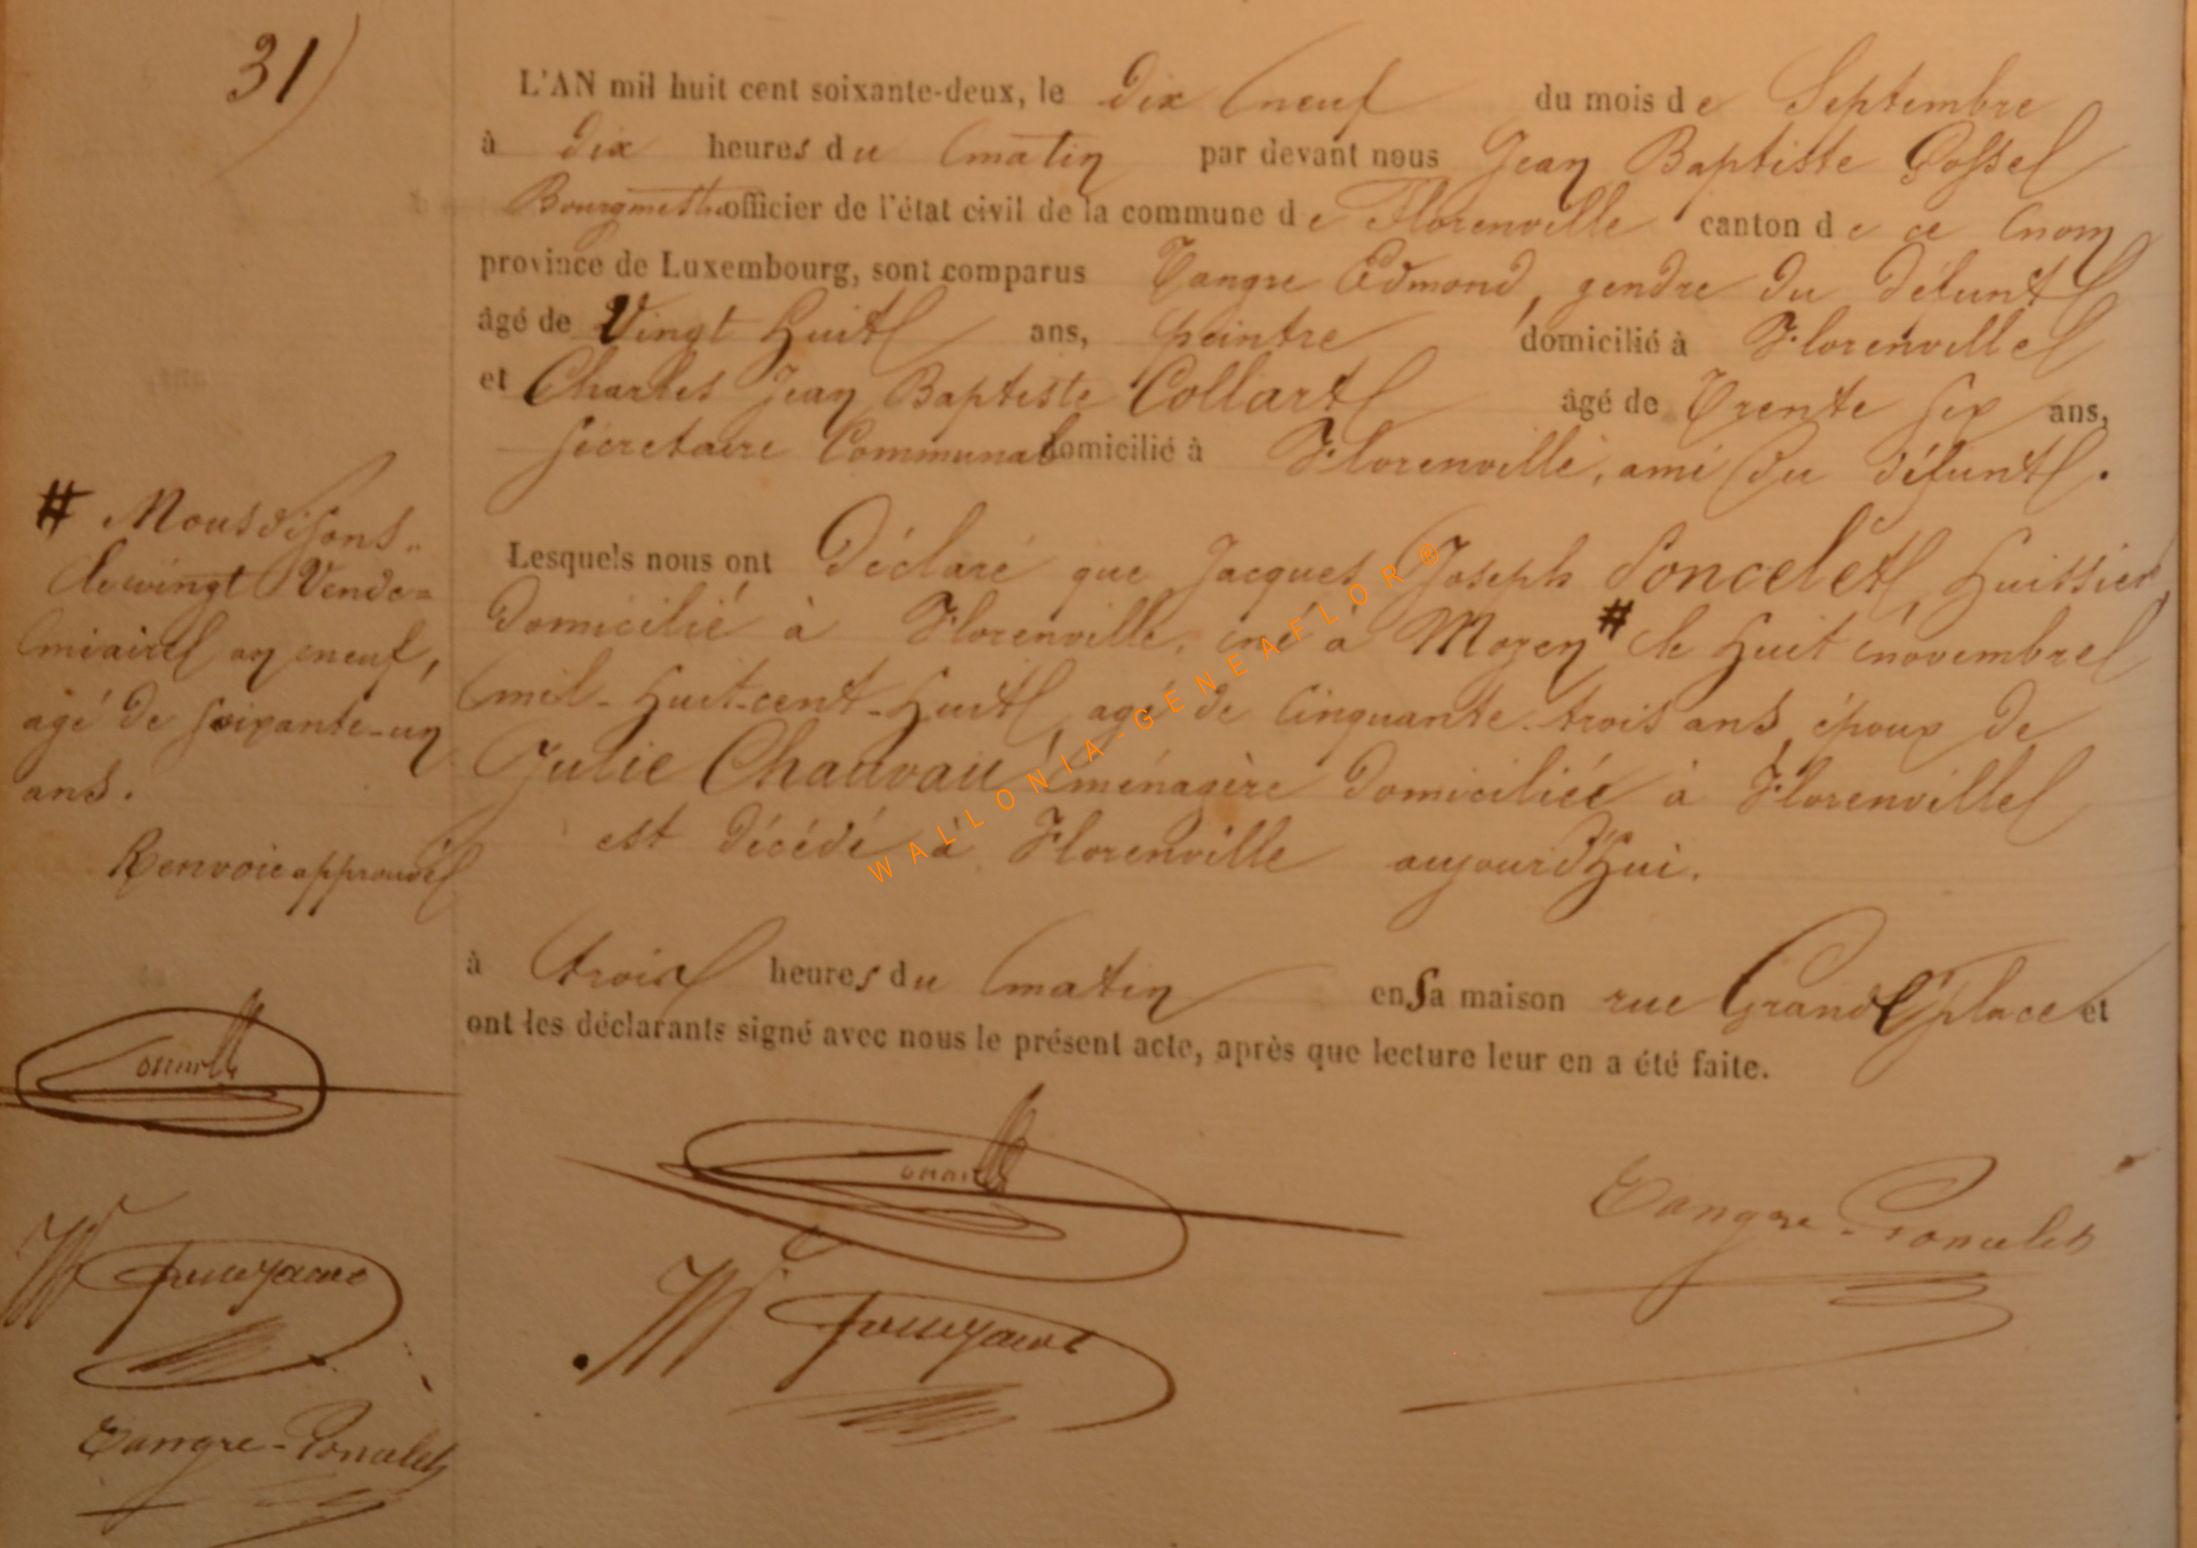 31)
L'AN mil huit cent soixante-deux, le dix neuf du mois de Septembre
à dix heures du matin par devant nous Jean Baptiste Gossel
Bourgmestre officier de l'état civil de la commune de Florenville canton de ce nom
province de Luxembourg, sont comparus Tangre Edmond, gendre du défunt
âgé de Vingt huit ans, peintre domicilié à Florenville
et Charles Jean Baptiste Collart âgé de Trente six ans,
secretaire Communal domicilié à Florenville, ami du défunt.
Lesquels nous ont Déclaré que Jacques Joseph Poncelet, huissier,
domicilié à Florenville, né à Moyen # le huit novembre
mil-huit-cent-huit, agé de Cinquante-trois ans, époux de
Julie Chauvau, ménagère domiciliée à Florenville
est décédé à Florenville aujourd'hui.
à trois heures du matin en sa maison rue Grand'place et
ont les déclarants signé avec nous le présent acte, après que lecture leur en a été faite.
Tangre-Poncelet
# Nous disons
le vingt Vendé=
miaire an neuf,
agé de soixante-un
ans.
Renvoie approuvé
Tangre-Poncelet
WALLONIA-GENEAFLOR®